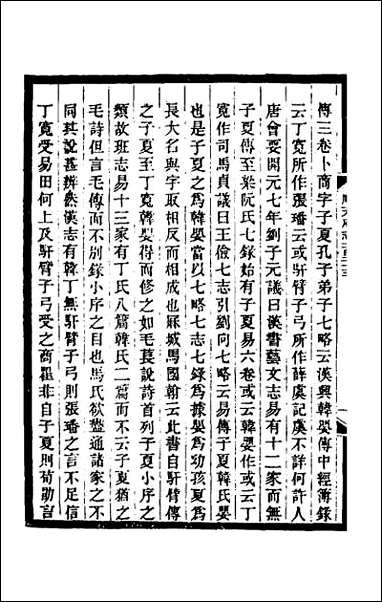 傳三卷卜商字子夏孔子弟子七略云漢興韓嬰傳中經簿錄
云丁寬所作張璠云或馯臂子弓所作薛虞記虞不詳何許人
唐會要開元七年劉子元議曰漢書藝文志易有十二家而無
子夏傳至梁阮氏七錄始有子夏易六卷或云韓嬰作或云丁
寬作司馬貞議曰王儉七志引劉向七略云易傳子夏韓氏嬰
也是子夏之爲韓嬰當以七略七志七錄爲據嬰爲幼孩夏爲
長大名與字取相反而相成也厤城馬國翰云此書自馯臂傳
之子夏至丁寬韓嬰得而修之如毛萇說詩首列子夏小序之
類故班志易十三家有丁氏八篇韓氏二篇而不云子夏猶之
毛詩但言毛傳而不別錄小序之目也馬氏欲盡通諸家之不
同其說甚辨然漢志有韓丁無馯臂子弓則張璠之言不足信
丁寬受易田何上及馯臂子弓受之商瞿非自子夏則荀勖言